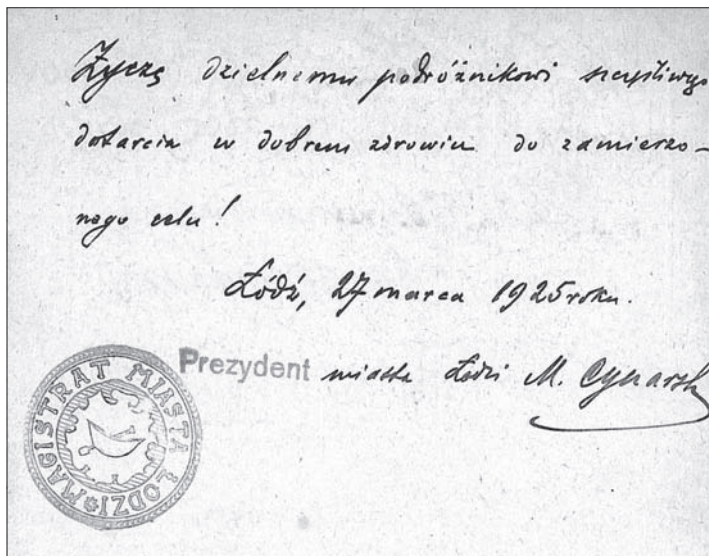 Życzę dzielnemu podróżnikowi szczęśliwego
dotarcia w dobrem zdrowiu do zamierzo-
nego celu!
Łódź, 27 marca 1925 roku.
Prezydent miasta Łodzi M. Cynarsk
MAGISTRAT MIASTA ŁODZI